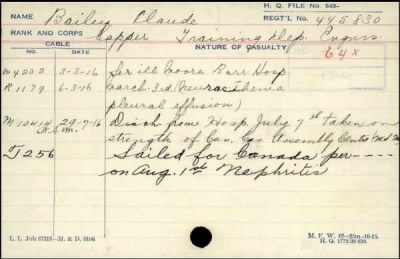 H. Q. FILE No. 649-
NAME Bailey Claude REGT'L No. 445830
RANK AND CORPS Sapper Training Dep. Engnrs.
CABLE NATURE OF CASUALTY 64x
No. DATE
M4202 3-3-16 Ser ill Moore Barr Hosp
R1179 6-3-16 March 3rd (Neurasthenia
pleural effusion)
M10414 29-7-16 Disch from Hosp. July 7th taken on
strength of Can. Cas Assembly Centre
T256 Sailed for Canada per ----
on Aug. 1st Nephritis
L. L. Job 87213—M. & D. 8106.
M. F. W. 42-25m.-10-15.
H. Q. 1772-39-893.